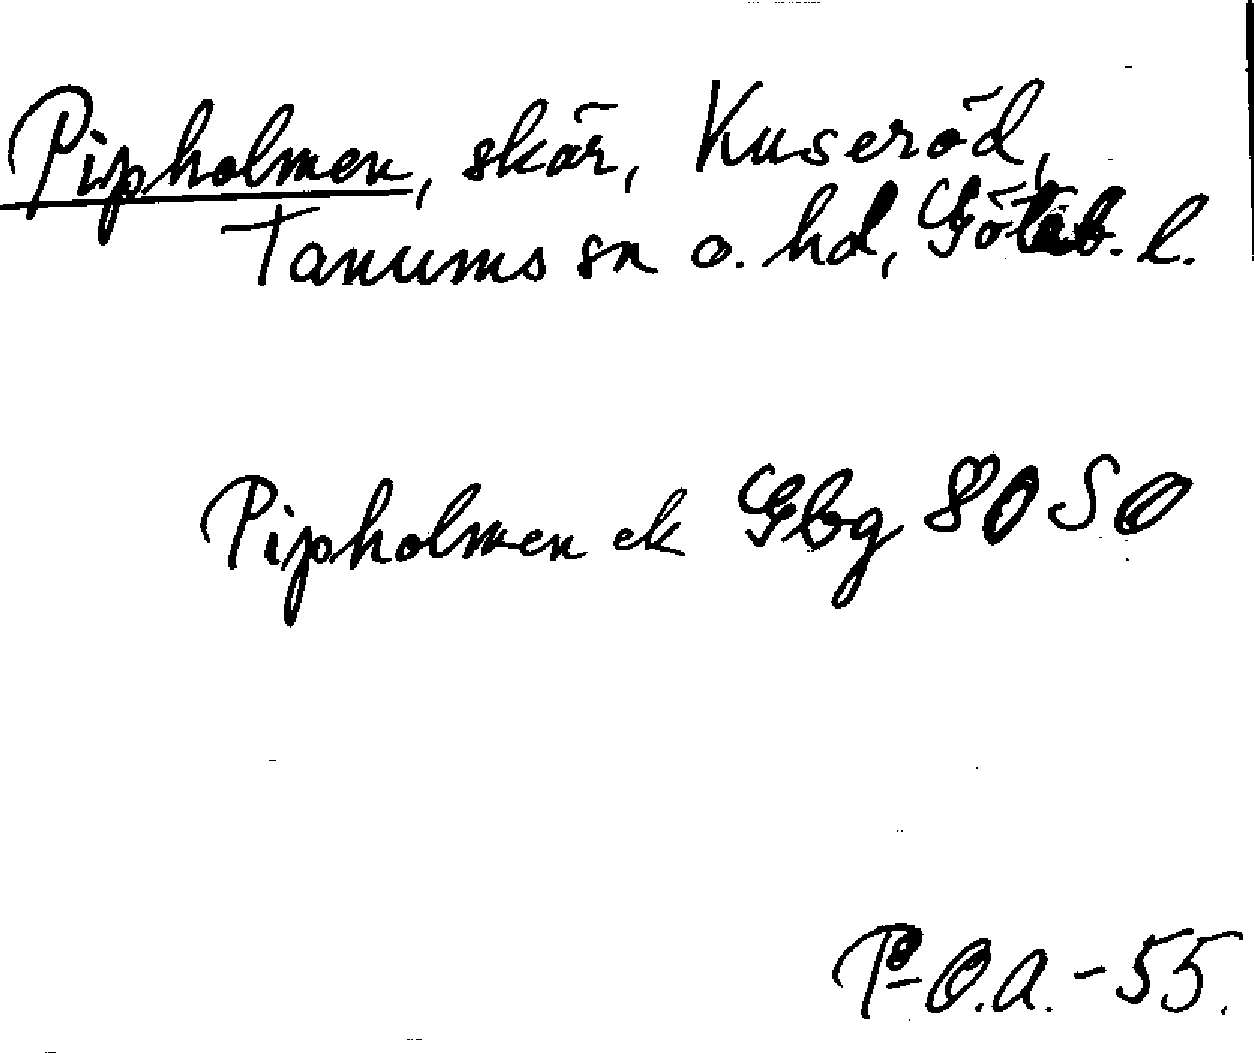 Pipholmen, skär, Kuseröd,
Tanums sn o. hd, Göteb. l.
Pipholmen ek Gbg 8050
P-O.A. -55.